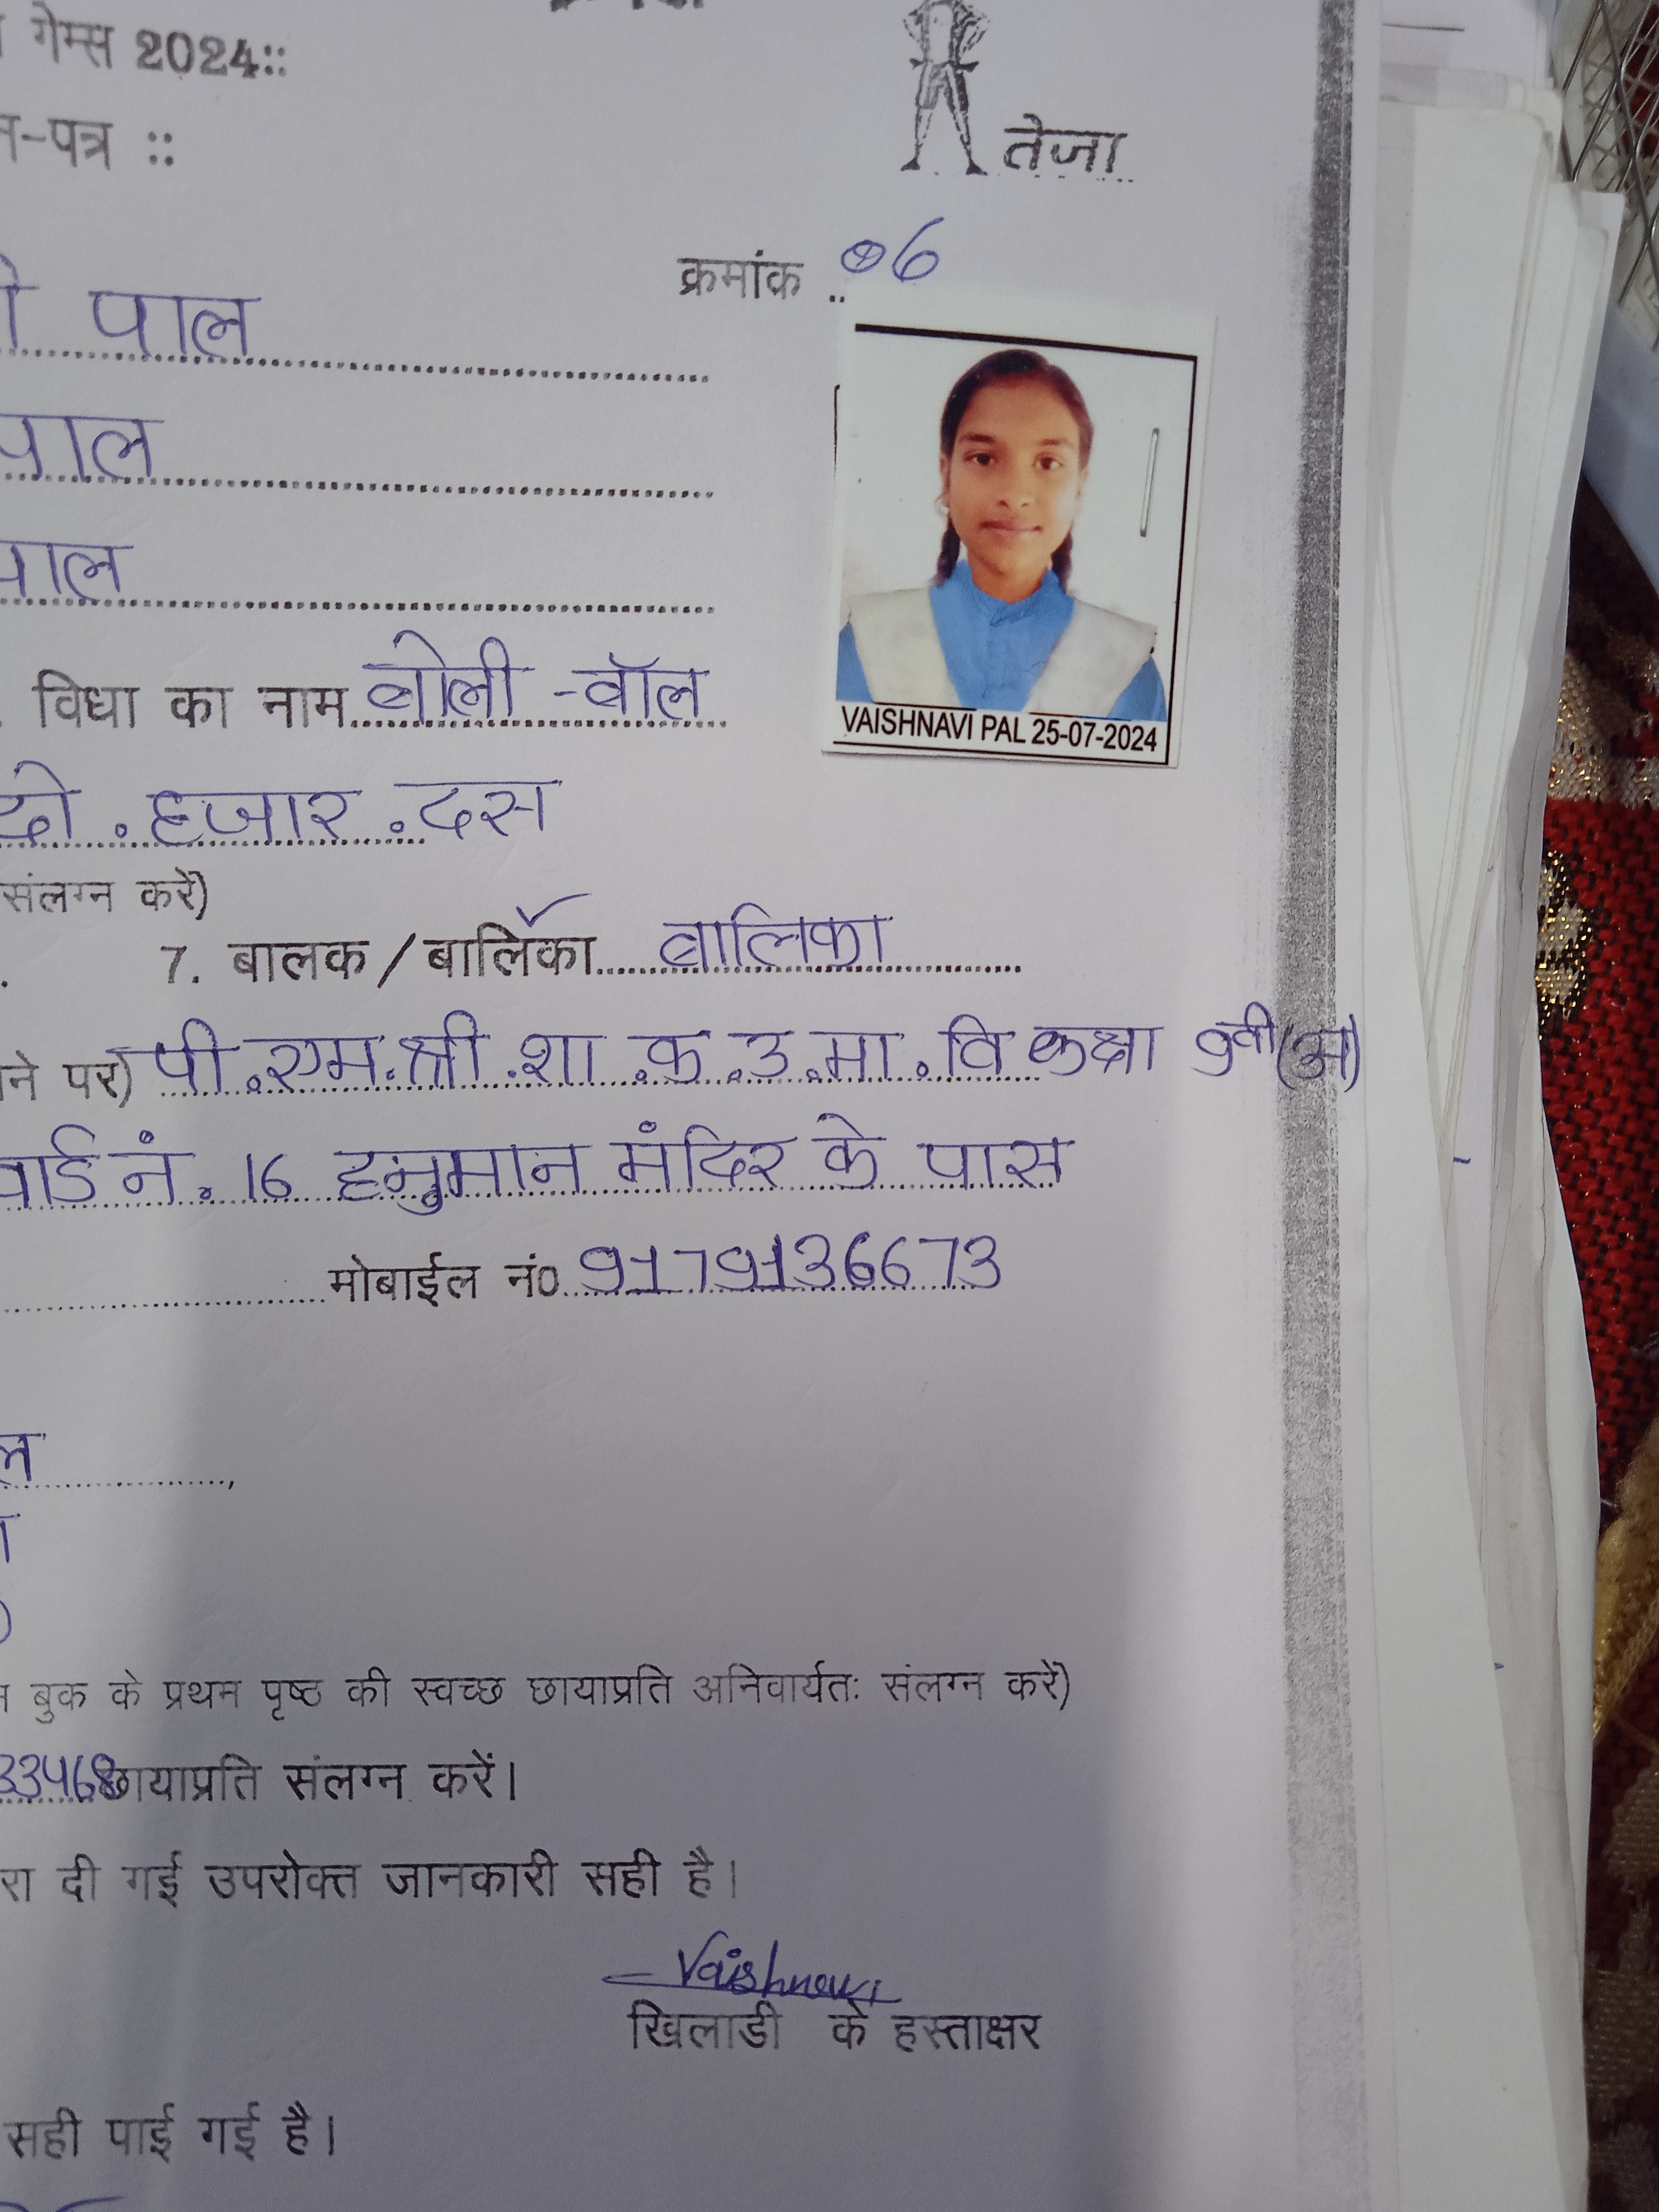 गेम्स 2024::
-पत्र ::
तेजा
क्रमांक ..06
पाल
पाल
पाल
विधा का नाम बोली -बॉल
VAISHNAVI PAL 25-07-2024
दो . हजार . दस
संलग्न करें)
7. बालक / बालिका.... बालिका
ने पर) पी.एम.श्री.शा.क.उ.मा.वि कक्षा 9वी(अ)
वार्ड नं. 16 हनुमान मंदिर के पास
मोबाईल नं0 9179136673
ल
बुक के प्रथम पृष्ठ की स्वच्छ छायाप्रति अनिवार्यतः संलग्न करें)
33468 छायाप्रति संलग्न करें।
रा दी गई उपरोक्त जानकारी सही है।
Vaishnavi
खिलाडी के हस्ताक्षर
सही पाई गई है।